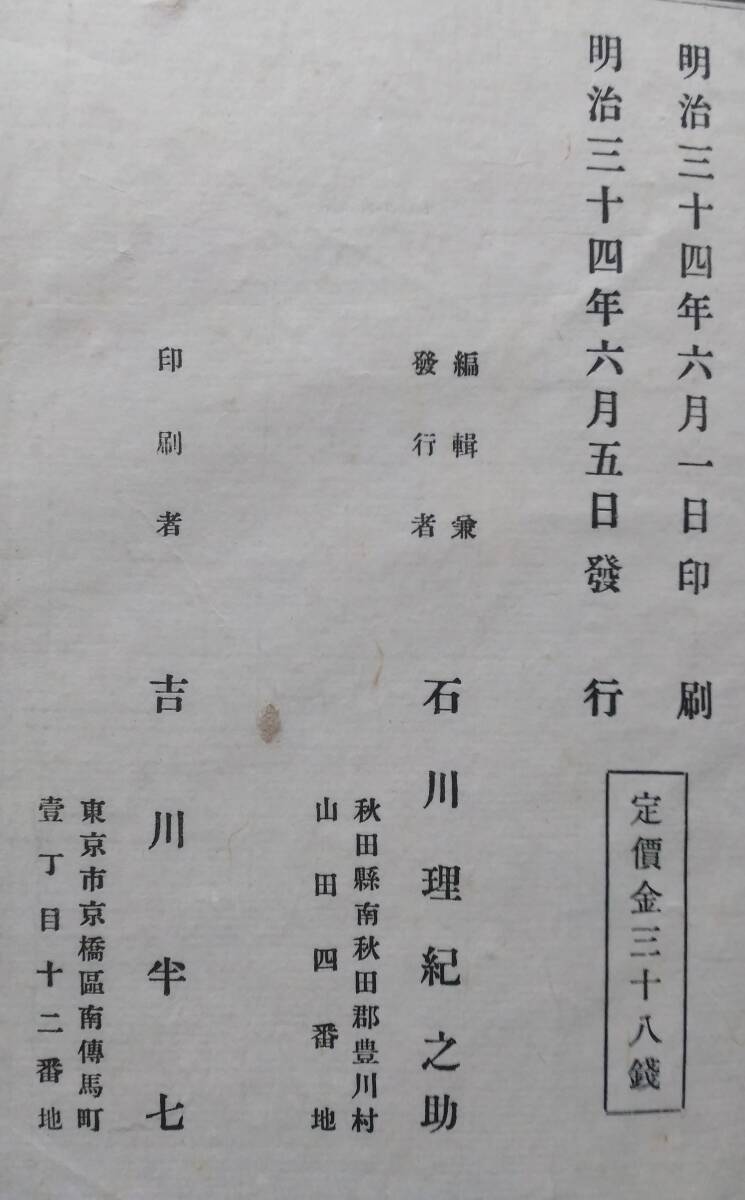 明治三十四年六月一日印刷
明治三十四年六月五日發行
定價金三十八錢
編輯兼
發行者
石川理紀之助
秋田縣南秋田郡豊川村
山田四番地
印刷者
吉川半七
東京市京橋區南傳馬町
壹丁目十二番地